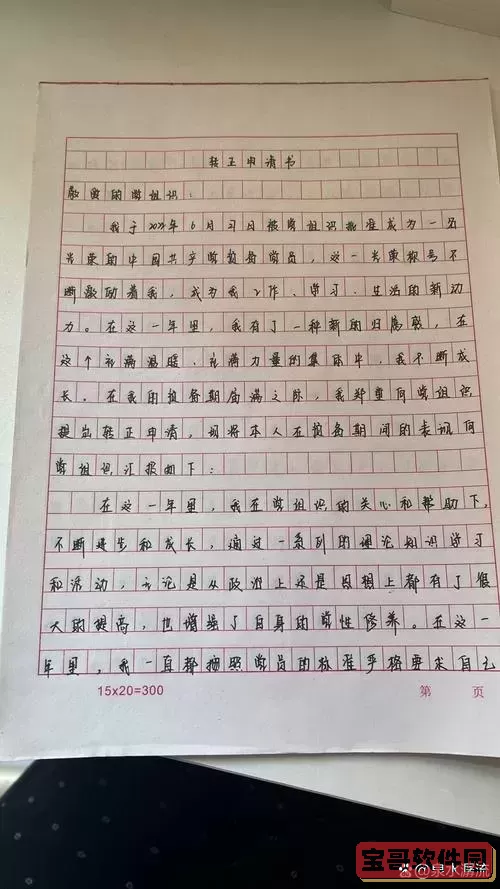 转正申请书
敬爱的党组织:
我于2021年6月27日被党组织批准成为一名
光荣的中国共产党预备党员,这一光荣称号不
断激励着我,成为我工作、学习、生活的新动
力。在这一年里,我有了一种新的归属感,在
这个充满温暖、充满力量的集体中,我不断成
长。在我的预备期届满之际,我郑重向党组织
提出转正申请,现将本人在预备期间的表现向
党组织汇报如下:
在这一年里,我在党组织的关心和帮助下,
不断进步和成长,通过一系列的理论知识学习
和活动,无论是从政治上还是思想上都有了很
大的提高,也增强了自身的党性修养。在这一
年里,我一直都按照党员的标准严格要求自己
15x20=300
第 页
宝哥软件园
@泉水潺流